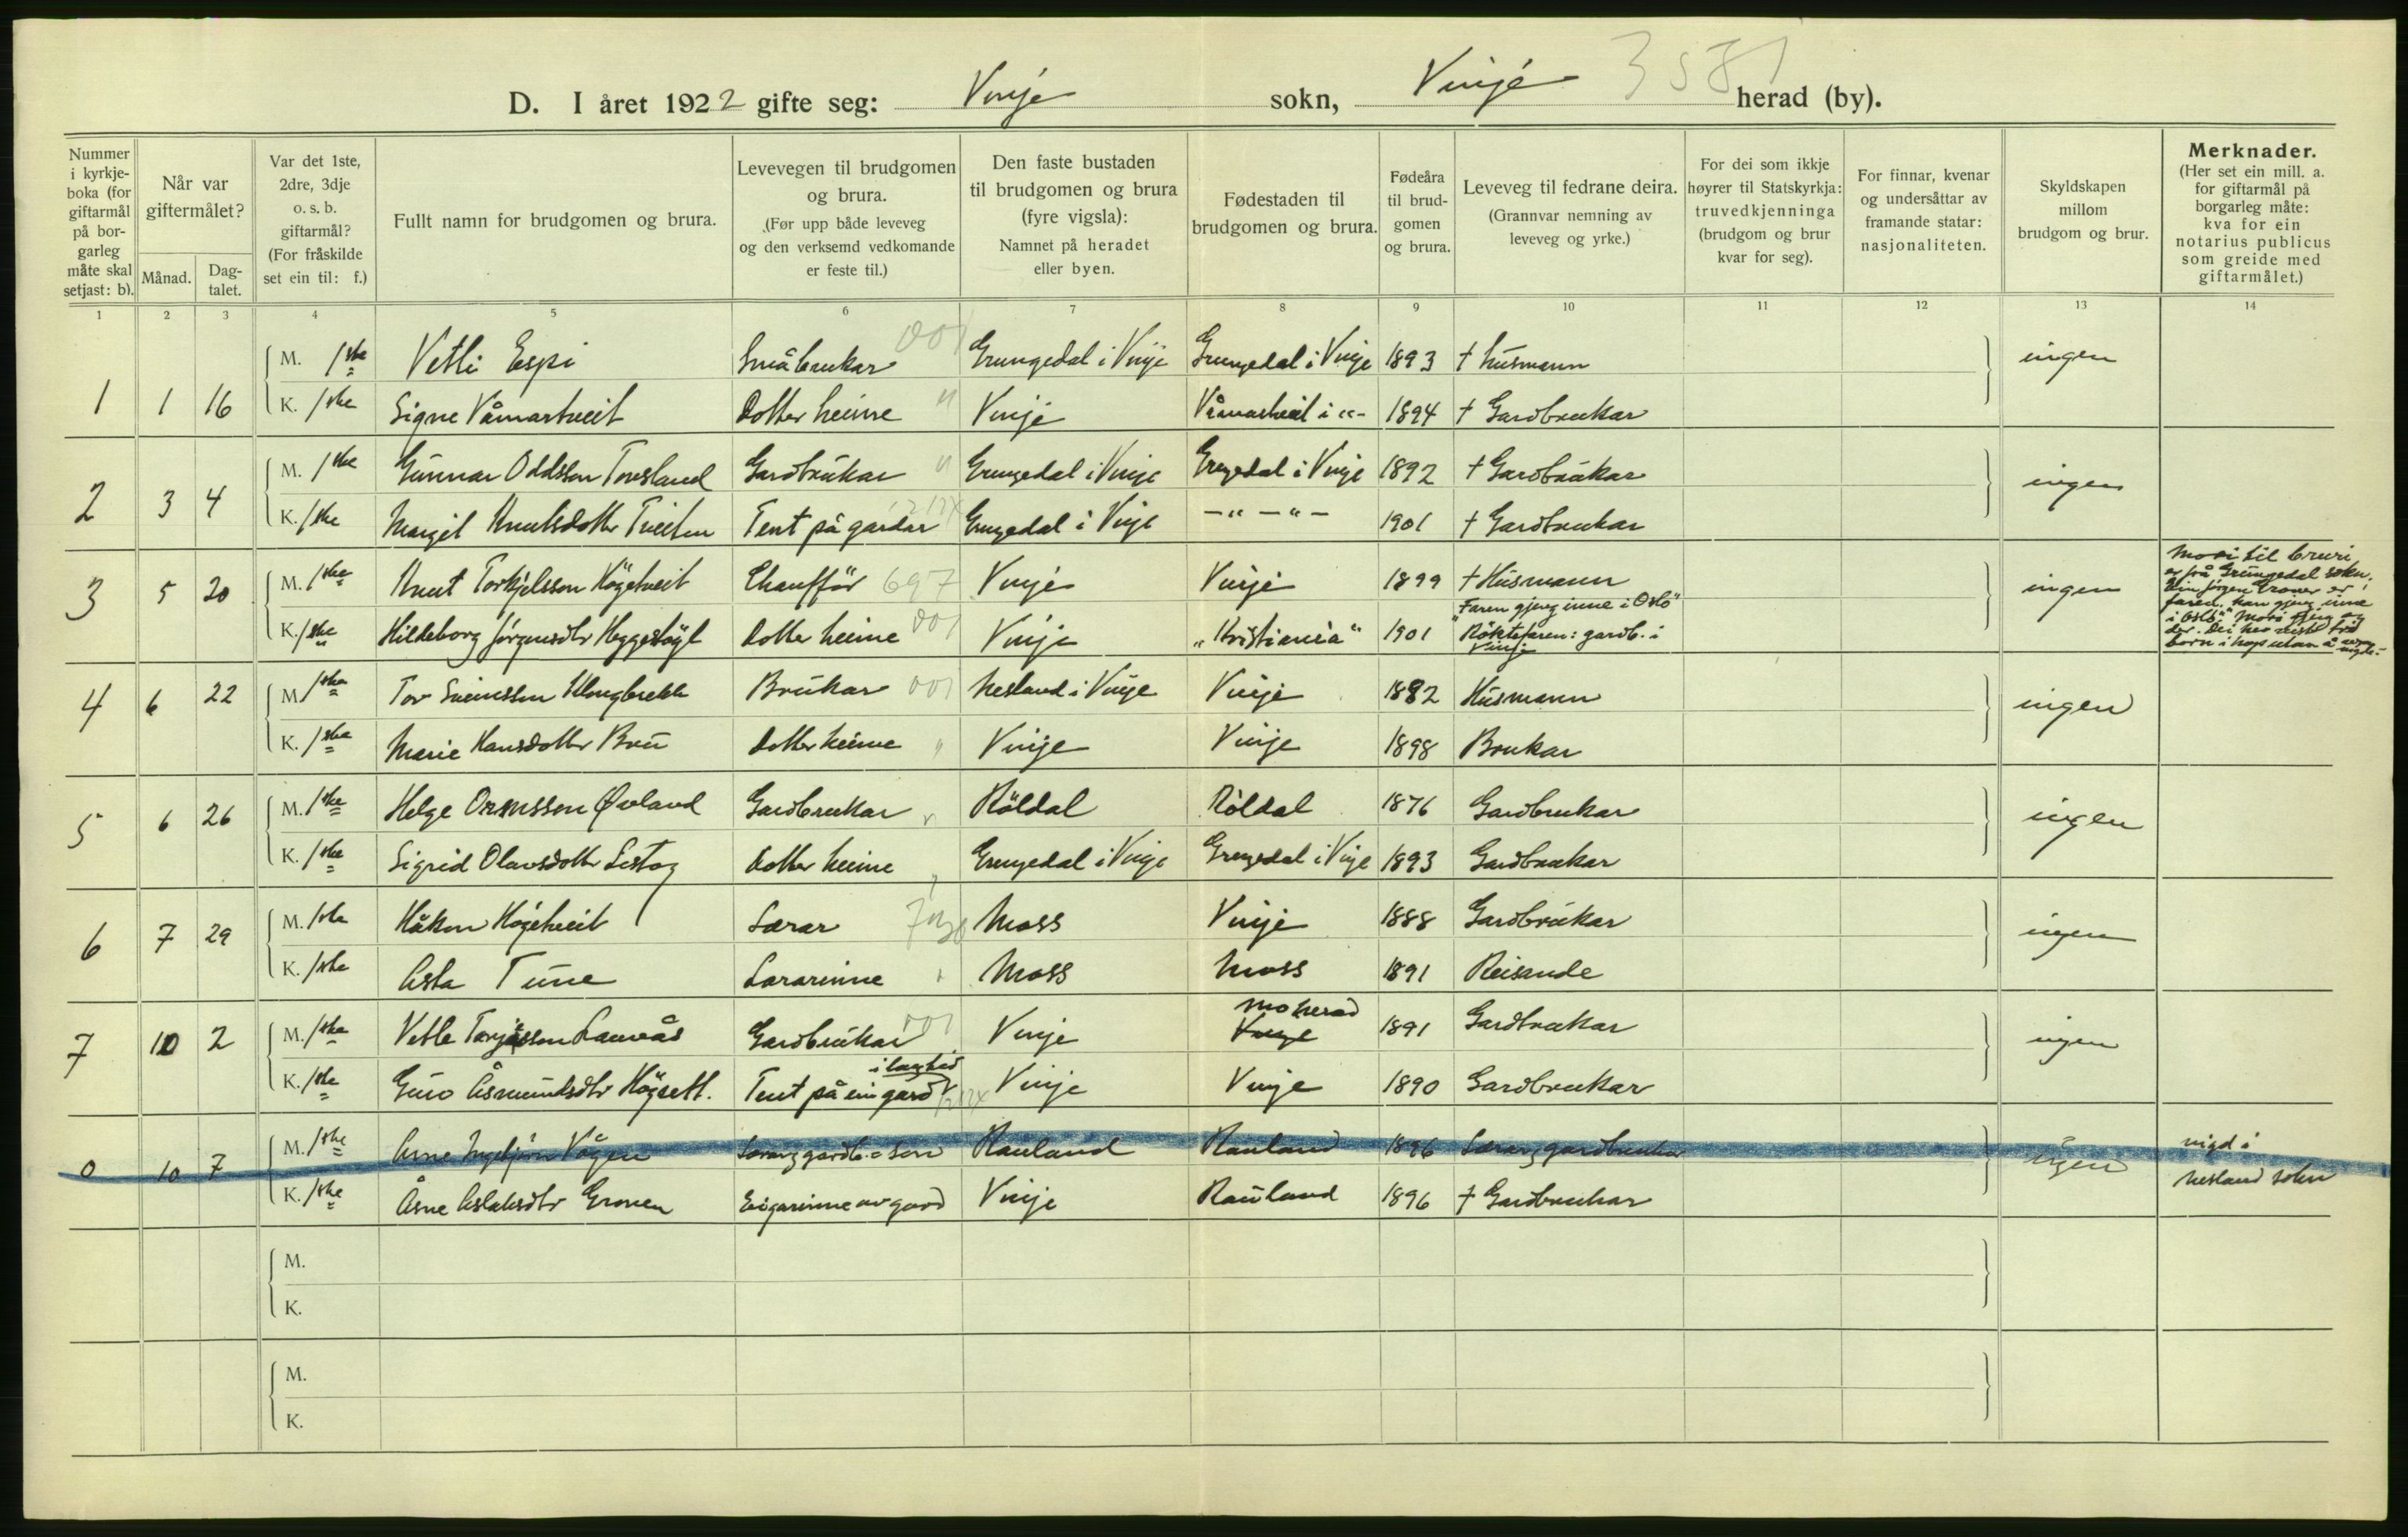 D. I året 1922 gifte seg: Vinje sokn, Vinje herad (by). 3581
Nummer i kyrkje-boka (for giftarmål på bor-garleg måte skal setjast: b).
Når var giftermålet?
Månad.
Dag-talet.
Var det 1ste, 2dre, 3dje o. s. b. giftarmål? (For fråskilde set ein til: f.)
Fullt namn for brudgomen og brura.
Levevegen til brudgomen og brura. (Før upp både leveveg og den verksemd vedkomande er feste til.)
Den faste bustaden til brudgomen og brura (fyre vigsla): Namnet på heradet eller byen.
Fødestaden til brudgomen og brura.
Fødeåra til brud-gomen og brura.
Leveveg til fedrane deira. (Grannvar nemning av leveveg og yrke.)
For dei som ikkje høyrer til Statskyrkja: truvedkjenninga (brudgom og brur kvar for seg).
For finnar, kvenar og undersåttar av framande statar: nasjonaliteten.
Skyldskapen millom brudgom og brur.
Merknader. (Her set ein mill. a. for giftarmål på borgarleg måte: kva for ein notarius publicus som greide med giftarmålet.)
1 2 3 4 5 6 7 8 9 10 11 12 13 14
M. 1ste Vetli Espi Småbrukar 001 Grungedal i Vinje Grungedal i Vinje 1893 † husmann ingen
1 1 16 K. 1ste Signe Våmartveit Dotter heime " Vinje Våmartveit i "- 1894 † Gardbrukar
M. 1ste Gunnar Oddsson Torsland Gardbrukar " Grungedal i Vinje Grungedal i Vinje 1892 † Gardbrukar ingen
2 3 4 K. 1ste Margit Knutsdotter Tveiten Tent på gardar Grungedal i Vinje -"-"- 1901 † Gardbrukar
3 5 20 M. 1ste Knut Torkjelsson Högetveit Chaufför 697 Vinje Vinje 1899 † Husmann ingen
"Faren gjeng inne i Oslo"
K. 1ste Hildeborg Jörgensdtr Heggestöyl Dotter heime 001 Vinje "Kristiania" 1901 Röktefaren: gardb. i Vinje
Mori til bruri
er frå Grungedal sokn.
Ein Jörgen Groner er
faren. han gjeng inne
i Oslo. Mori gjeng óg
der. Dei hev
born i hop utan å vera vigde.
4 6 22 M. 1ste Tov Sveinsson Klongbrekk Brukar 001 Nesland i Vinje Vinje 1882 Husmann ingen
K. 1ste Marie Hansdotter Bru Dotter heime " Vinje Vinje 1898 Brukar
5 6 26 M. 1ste Helge Ormsson Øvland Gardbrukar Röldal Röldal 1876 Gardbrukar ingen
K. 1ste Sigrid Olavsdotter Listog Dotter heime Grungedal i Vinje Grungedal i Vinje 1893 Gardbrukar
6 7 29 M. 1ste Håkon Högetveit Lærar Moss Vinje 1888 Gardbrukar ingen
K. 1ste Asta Tune Lærarinne Moss Moss 1891 Reisande
Mo herad
7 10 2 M. 1ste Vetle Torjusson Lauvås Gardbrukar 001 Vinje Vinje 1891 Gardbrukar ingen
i lag tid
K. 1ste Guro Åsmundsdtr Högsett. Tent på ein gard Vinje Vinje 1890 Gardbrukar
0 10 7 M. 1ste Arne Ingebjörn Vågen Lærar, gardb. = son Rauland Rauland 1896 Lærar, gardbrukar ingen vigd i
K. 1ste Åsne Aslaksdtr Gronen Eigarinne av gard Vinje Rauland 1896 † Gardbrukar Nesland sokn
M.
K.
M.
K.